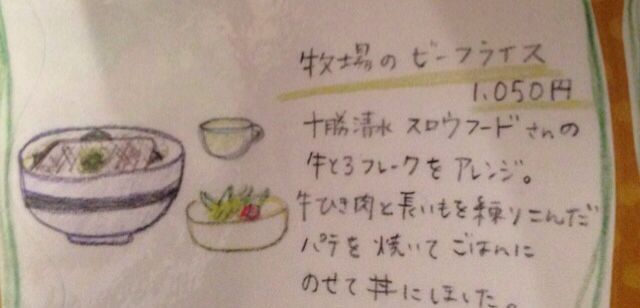 牧場のビーフライス
1,050円
十勝清水 スロウフードさんの
牛とろフレークを アレンジ。
牛ひき肉と長いもを練りこんだ
パテを焼いてごはんに
のせて丼にしました。